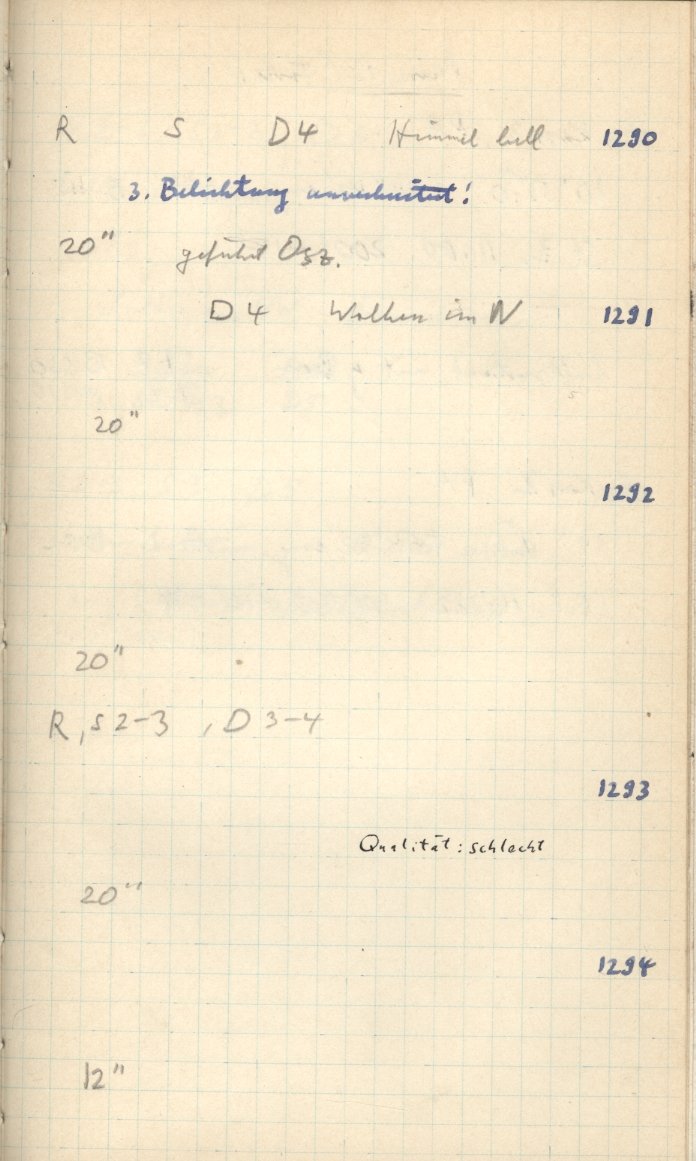 R S D4 Himmel hell 1290
3. Belichtung
20" geführt Osz.
D4 Wolken im N 1291
20"
1292
20"
R, S 2-3 , D 3-4
1293
Qualität: schlecht
20"
1294
12"